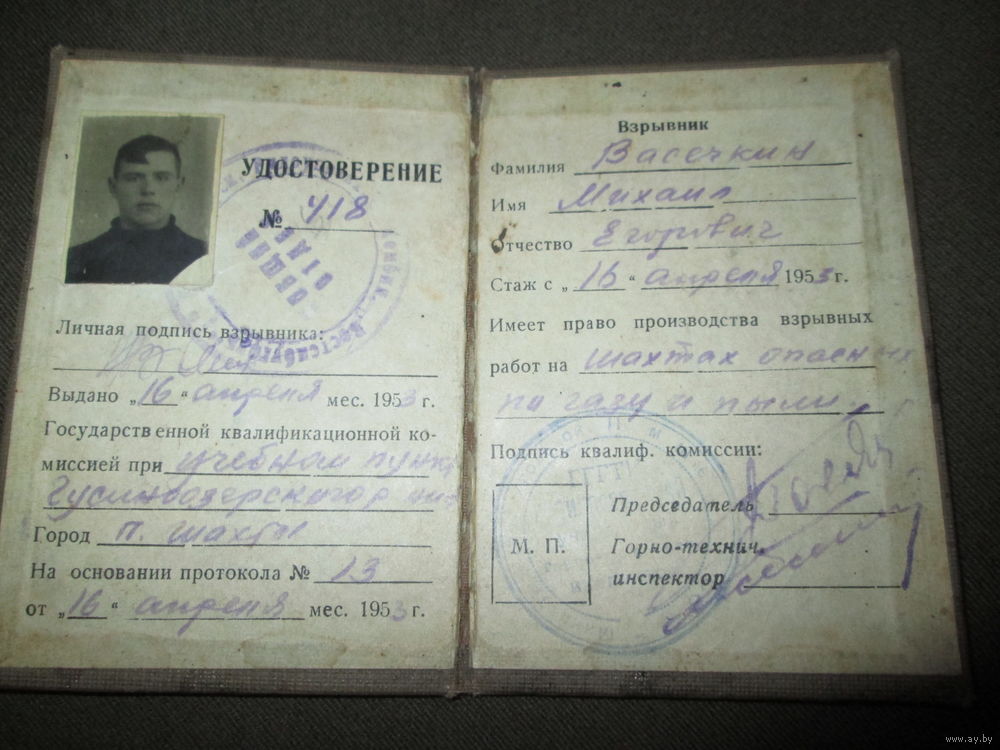 УДОСТОВЕРЕНИЕ
№ 418
Личная подпись взрывника:
Выдано „16“ апреля мес. 1953 г.
Государственной квалификационной ко-
миссией при учебном пункте
Гусиноозерского р
Город п. шахты
На основании протокола № 13
от „16“ апреля мес. 1953 г.
Взрывник
Фамилия Васечкин
Имя Михаил
Отчество Егорович
Стаж с „16“ апреля 1953 г.
Имеет право производства взрывных
работ на шахтах опасных
по газу и пыли
Подпись квалиф. комиссии:
Председатель
М. П.
Горно-технич.
инспектор
www.ay.by